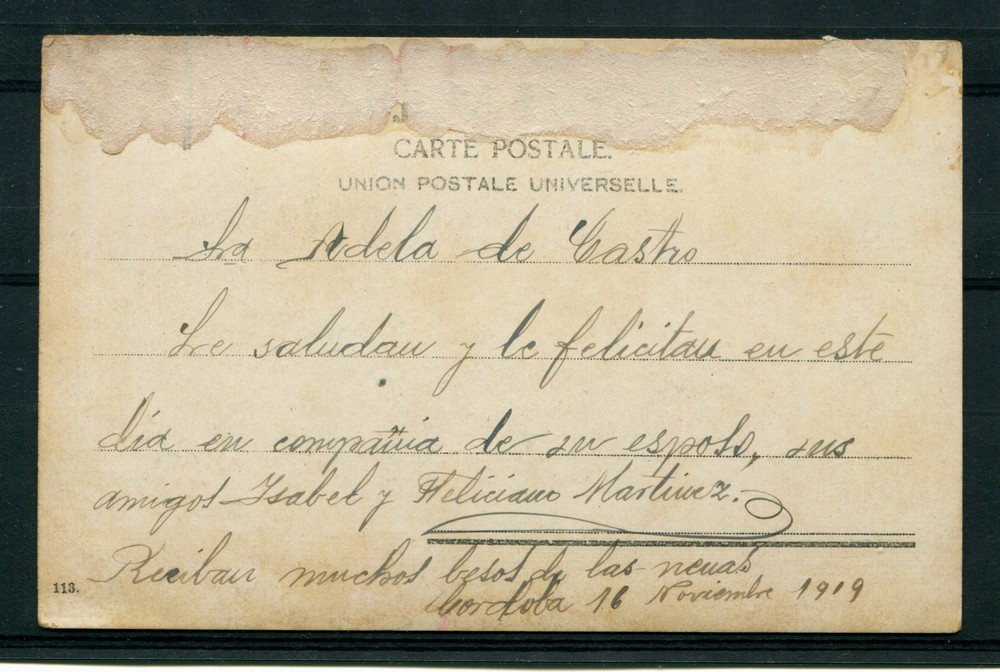 CARTE POSTALE.
UNION POSTALE UNIVERSELLE.
Sra Adela de Castro
Le saludan y le felicitan en este
día en compañia de su esposo, sus
amigos Isabel y Feliciano Martinez.
Reciban muchos besos de las nenas
113.
Cordoba 16 Noviembre 1919